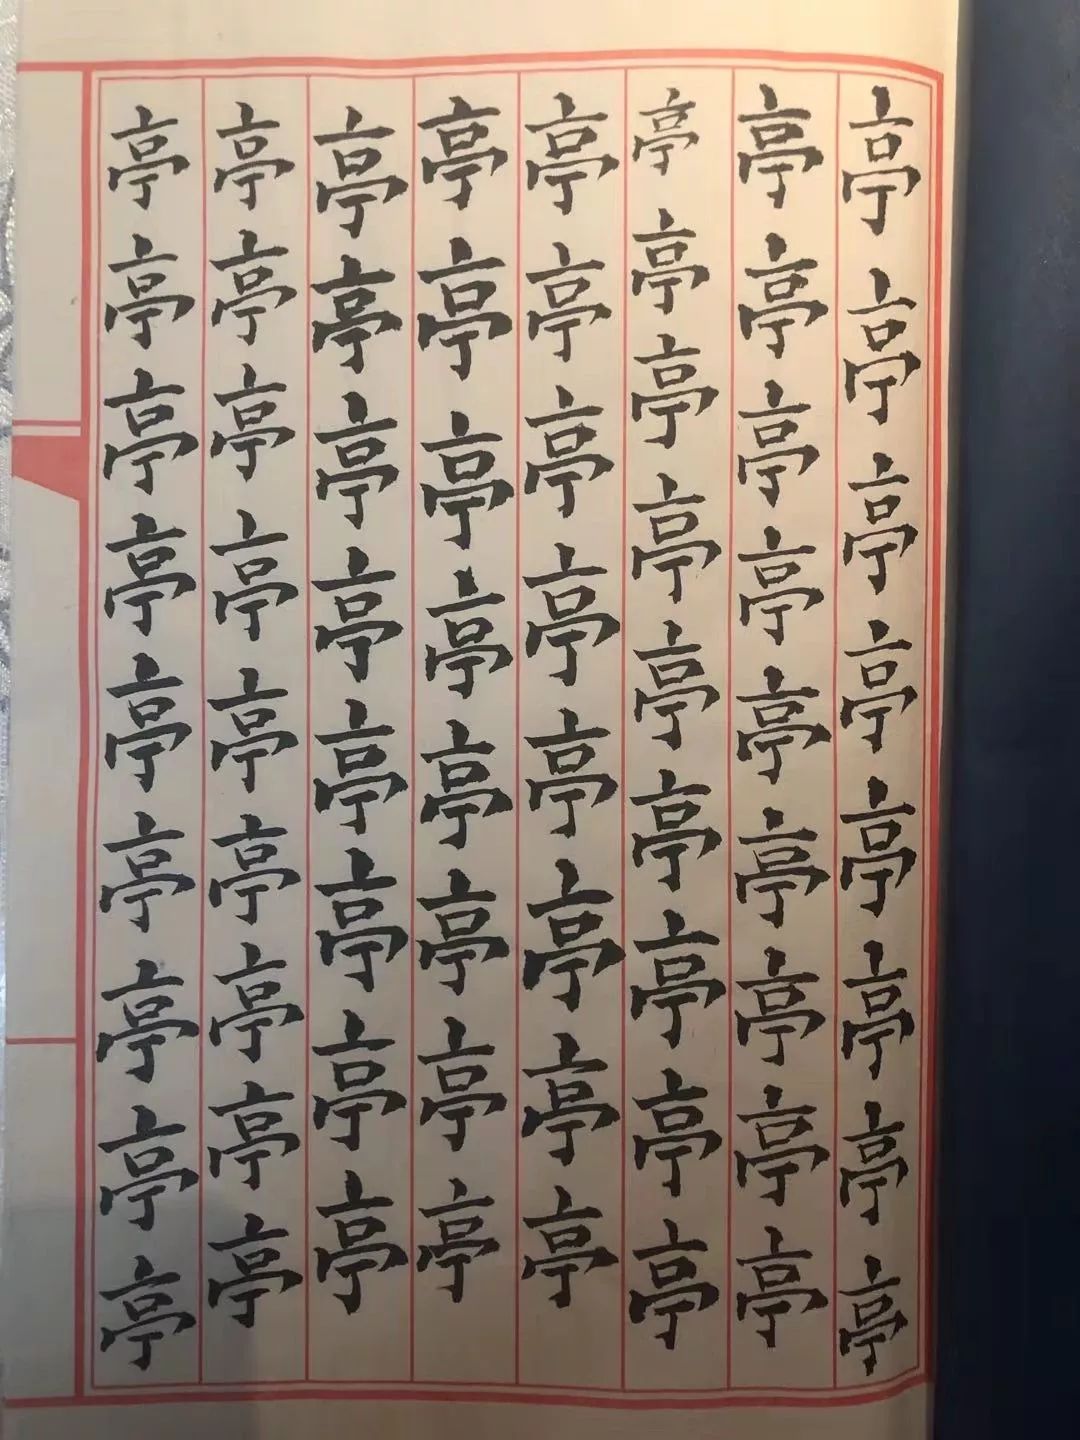 亭亭亭亭亭亭亭亭
亭亭亭亭亭亭亭亭亭
亭亭亭亭亭亭亭亭亭
亭亭亭亭亭亭亭亭
亭亭亭亭亭亭亭亭
亭亭亭亭亭亭亭亭
亭亭亭亭亭亭亭亭亭
亭亭亭亭亭亭亭亭亭